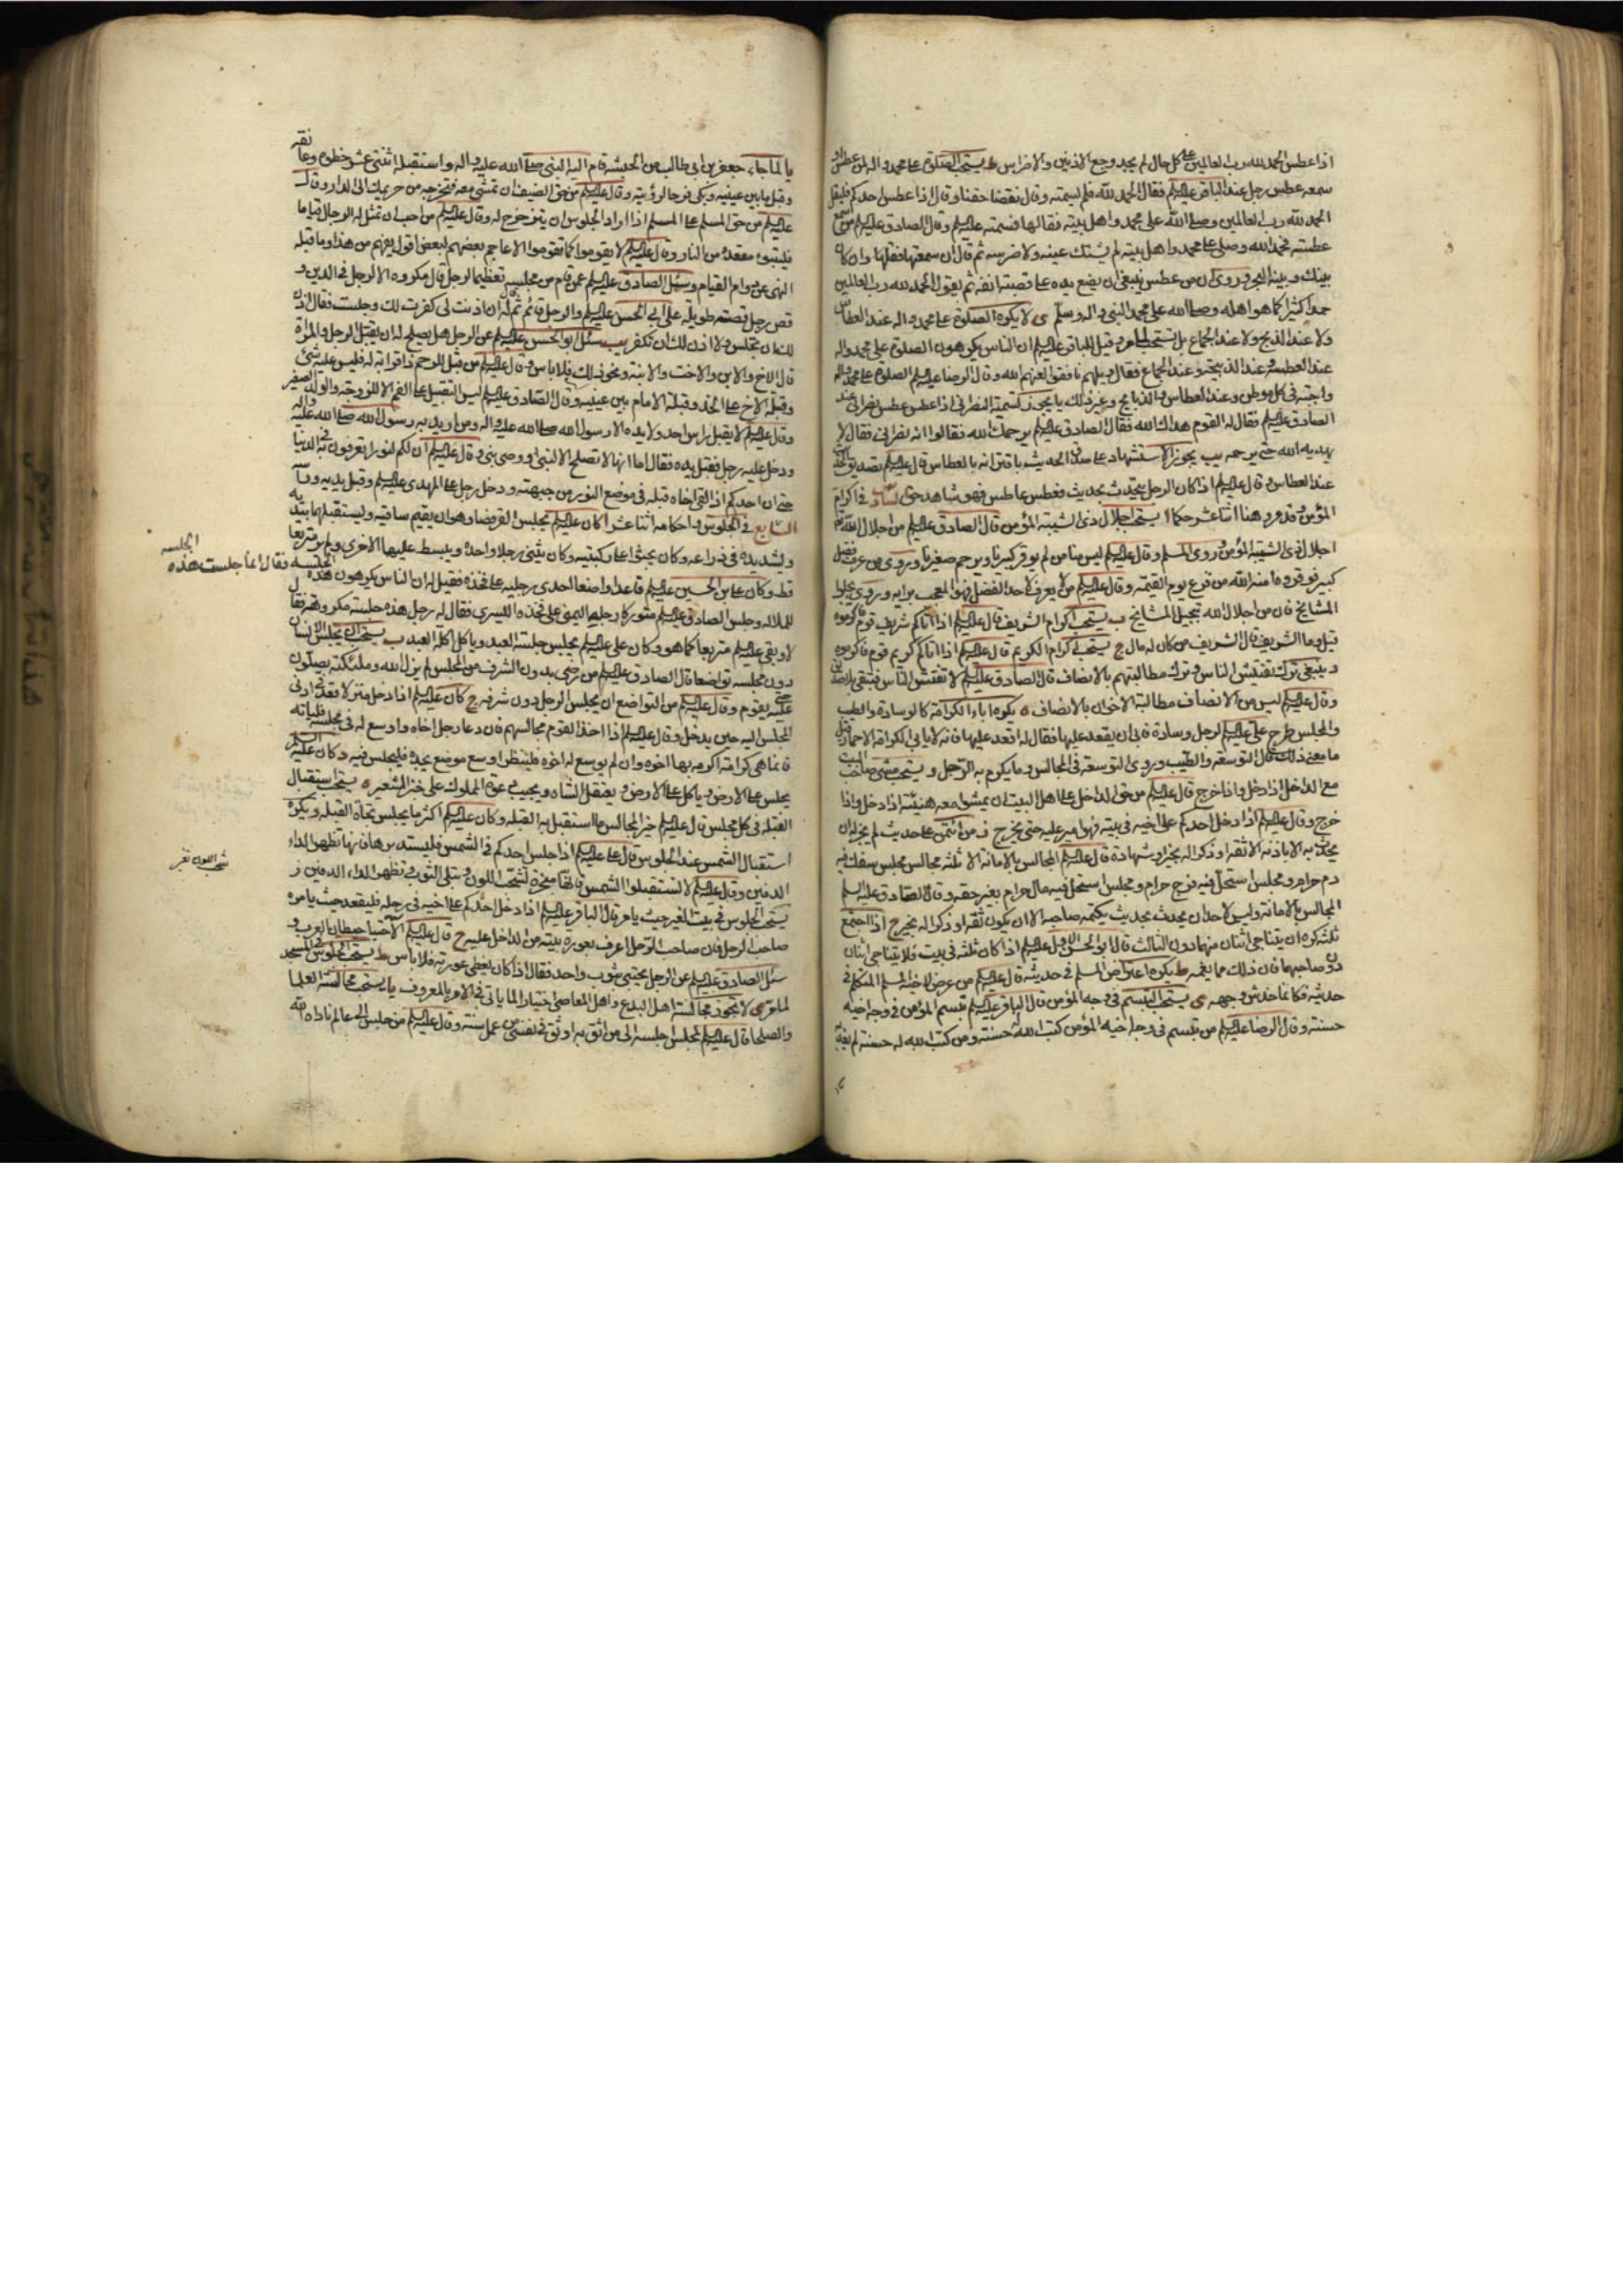 اذا عطس الحمد لله رب العالمين على كل حال لم يجد وجع الاذنين والاضراس ط يستحب الصلوة على محمد واله لمن عطس او
سمعه عطس رجل عند الباقر عليه السلم فقال الحمد لله فلم يسمته وقال نقصنا حقنا وقال اذا عطس احدكم فليقل
الحمد لله رب العالمين وصلى الله على محمد واهل بيته فقالها فسمته عليه السلم وقال الصادق عليه السلم من سمع
عطسته فحمد الله وصلى على محمد واهل بيته لم يشتك عينه ولا ضرسه ثم قال ان سمعتها فقلها وان كان
بينك وبينه البحر وروى ان من عطس ينبغى ان يضع يده على قصبة انفه ثم يقول الحمد لله رب العالمين
حمدا كثيرا كما هو اهله وصلى الله على محمد النبى واله وسلم ى لا يكره الصلوة على محمد واله عند العطاس
ولا عند الذبيح ولا عند الجماع بل تستحب لما مر وقيل للباقر عليه السلم ان الناس يكرهون الصلوة على محمد واله
عند العطسة وعند الذبيحة وعند الجماع فقال ويلهم نافقوا لعنهم الله وقال الرضا عليه السلم الصلوة على محمد واله
واجبة فى كل موطن وعند العطاس والذبايح وغير ذلك يا يجوز تسمية النصرانى اذا عطس عطس نصرانى عند
الصادق عليه السلم فقال له القوم هداك الله فقال الصادق عليه السلم يرحمك الله فقالوا انه نصرانى فقال لا
يهديه الله حتى يرحمه يب يجوز الاستشهاد على صدق الحديث باقترانه بالعطاس قال عليه السلم تصديق الحديث
عند العطاس وقال عليه السلم اذا كان الرجل يتحدث بحديث فعطس عاطس فهو شاهد حق السادس فى اكرام
المؤمن وقد مر وهنا اثنا عشر حكما ا يستحب اجلال ذى الشيبة المؤمن قال الصادق عليه السلم من اجلال الله
اجلال ذى الشيبة المؤمن وروى المسلم وقال عليه السلم ليس منا من لم يوقر كبيرنا ويرحم صغيرنا وروى من عرف فضل
كبير فوقره امنه الله من فزع يوم القيمة وقال عليه السلم من لا يعرف لاحد الفضل فهو المعجب برايه وروى بجلوا
المشايخ فان من اجلال الله تبجيل المشايخ ب يستحب اكرام الشريف قال عليه السلم اذا اتاكم شريف قوم فاكرموه
قيل وما الشريف قال الشريف من كان له مال ج يستحب اكرام الكريم قال عليه السلم اذا اتاكم كريم قوم فاكرموه
د ينبغى ترك تفتيش الناس وترك مطالبتهم بالانصاف قال الصادق عليه السلم لا تفتش الناس فتبقى بلا صديق
وقال عليه السلم ليس من الانصاف مطالبة الاخوان بالانصاف ه يكره اباء الكرامة كالوسادة والطيب
والمجلس طرح على عليه السلم لرجل وسادة فابى ان يقعد عليها فقال له اقعد عليها فانه لا يابى الكرامة الا حمار قيل
ما معنى ذلك قال التوسعة والطيب وروى التوسعة فى المجالس وما يكرم به الرجل و يستحب مشى صاحب البيت
مع الداخل اذا دخل واذا خرج قال عليه السلم من حق الداخل على اهل البيت ان يمشوا معه هنيئة اذا دخل واذا
خرج وقال عليه السلم اذا دخل احدكم على اخيه فى بيته فهو امير عليه حتى يخرج ز من ائتمن على حديث لم يجز له ان
يحدث به الا باذنه الا ثقة او ذكرا له بخير او شهادة قال عليه السلم المجالس بالامانة الا ثلثة مجالس مجلس سفك فيه
دم حرام ومجلس استحل فيه فرج حرام ومجلس استحل فيه مال حرام بغير حقه وقال الصادق عليه السلم
المجالس بالامانة وليس لاحد ان يحدث بحديث يكتمه صاحبه الا ان يكون ثقة او ذكرا له بخير ح اذا اجتمع
ثلثة كره ان يتناجى اثنان منهما دون الثالث قال ابو الحسن الاول عليه السلم اذا كان ثلثة فى بيت فلا يتناجى اثنان
دون صاحبهما فان ذلك مما يغمه ط يكره اعتراض المسلم فى حديثه قال عليه السلم من عرض لاخيه المسلم المتكلم فى
حديثه فكانما خدش وجهه ى يستحب التبسم فى وجه المؤمن قال الباقر عليه السلم تبسم المؤمن فى وجه اخيه
حسنة وقال الرضا عليه السلم من تبسم فى وجه اخيه المؤمن كتب الله له حسنة ومن كتب الله له حسنة لم يعذبه
يا لما جاء جعفر بن ابى طالب من الحبشة قام اليه النبى صلى الله عليه واله واستقبله اثنتى عشر خطوة وعانقه
وقبل ما بين عينيه وبكى فرحا لرؤيته وقال عليه السلم من حق الضيف ان تمشى معه فتخرجه من حريمك الى الدار وقال
عليه السلم من حق المسلم على المسلم اذا اراد الجلوس ان يتزحزح له وقال عليه السلم من احب ان تمثل له الرجال قياما
فليتبوء مقعده من النار وقال عليه السلم لا تقوموا كما تقوموا الاعاجم بعضهم لبعض اقول يفهم من هذا وما قبله
النهى عن دوام القيام وسئل الصادق عليه السلم عمن قام من مجلسه تعظيما لرجل قال مكروه الا لرجل فى الدين و
قص رجل قصة طويلة على ابى الحسن عليه السلم والرجل قائم ثم قال له ان اذنت لى كفرت لك وجلست فقال اذن
لك ان تجلس ولا اذن لك ان تكفر يب سئل ابو الحسن عليه السلم عن الرجل هل يصلح له ان يقبل الرجل والمراة
قال الاخ والابن والاخت والابنة ونحو ذلك فلا باس وقال عليه السلم من قبل للرحم ذا قرابة له فليس عليه شئ
وقبلة الاخ على الخد وقبلة الامام بين عينيه وقال الصادق عليه السلم ليس التقبيل على الفم الا للزوجة والولد الصغير
وقال عليه السلم لا يقبل راس احد ولا يده الا رسول الله صلى الله عليه واله ومن اريد به رسول الله صلى الله عليه واله
ودخل عليه رجل فقبل يده فقال اما انها لا تصلح الا لنبى او وصى نبى وقال عليه السلم ان لكم لنورا تعرفون به فى الدنيا
حتى ان احدكم اذا لقى اخاه قبله فى موضع النور من جبهته ودخل رجل على المهدى عليه السلم وقبل يديه ورجليه
السابع فى الجلوس واحكامه اثنا عشر ا كان عليه السلم يجلس القرفصا وهو ان يقيم ساقيه ويستقبلهما بيديه
ويشد يده فى ذراعه وكان يجثوا على ركبتيه وكان يثنى رجلا واحدة ويبسط عليها الاخرى ولم ير متربعا
قط وكان على بن الحسين عليه السلم قاعدا واضعا احدى رجليه على فخذه فقيل له ان الناس يكرهون هذه
الجلسة فقال انما جلست هذه الجلسة
للملالة وجلس الصادق عليه السلم متوركا رجله اليمنى على فخذه اليسرى فقال له رجل هذه جلسة مكروهة فقال
لا وبقى عليه السلم متربعا كما هو وكان على عليه السلم يجلس جلسة العبد وياكل اكل العبد ب يستحب ان يجلس الانسان
دون مجلسه تواضعا قال الصادق عليه السلم من رضى بدون الشرف من المجلس لم يزل الله وملئكته يصلون
عليه حتى يقوم وقال عليه السلم من التواضع ان يجلس الرجل دون شرفه ج كان عليه السلم اذا دخل منزلا قعد فى ادنى
المجلس اليه حين يدخل وقال عليه السلم اذا اخذ القوم مجالسهم فان دعا رجل اخاه واوسع له فى مجلسه فلياته
فانما هى كرامة اكرمه بها اخوه وان لم يوسع له اخوه فلينظر اوسع موضع يجده فليجلس فيه د كان عليه السلم
يجلس على الارض وياكل على الارض ويعتقل الشاة ويجيب دعوة المملوك على خبز الشعير ه يستحب استقبال
القبلة فى كل مجلس قال عليه السلم خير المجالس ما استقبل به القبلة وكان عليه السلم اكثر ما يجلس تجاه القبلة و يكره
استقبال الشمس عند الجلوس قال على عليه السلم اذا جلس احدكم فى الشمس فليستدبرها فانها تظهر الداء
الدفين وقال عليه السلم لا تستقبلوا الشمس فانها مبخرة تشحب اللون وتبلى الثوب وتظهر الداء الدفين ز
شحب اللون تغير
يستحب الجلوس فى بيت الغير حيث يامر قال الباقر عليه السلم اذا دخل احدكم على اخيه فى رحله فليقعد حيث يامره
صاحب الرحل فان صاحب الرحل اعرف بعورة بيته من الداخل عليه ح قال عليه السلم الاحتبا حيطان العرب و
سئل الصادق عليه السلم عن الرجل يحتبى بثوب واحد فقال اذا كان يغطى عورته فلا باس ط يستحب الجلوس فى المسجد
لما مر ى لا تجوز مجالسة اهل البدع واهل المعاصى اختيارا لما ياتى فى الامر بالمعروف يا يستحب مجالسة العلما
والصلحا قال عليه السلم لمجلس اجلسه الى من اثق به اوثق فى نفسى من عمل سنة وقال عليه السلم من جلس الى عالم ناداه الله